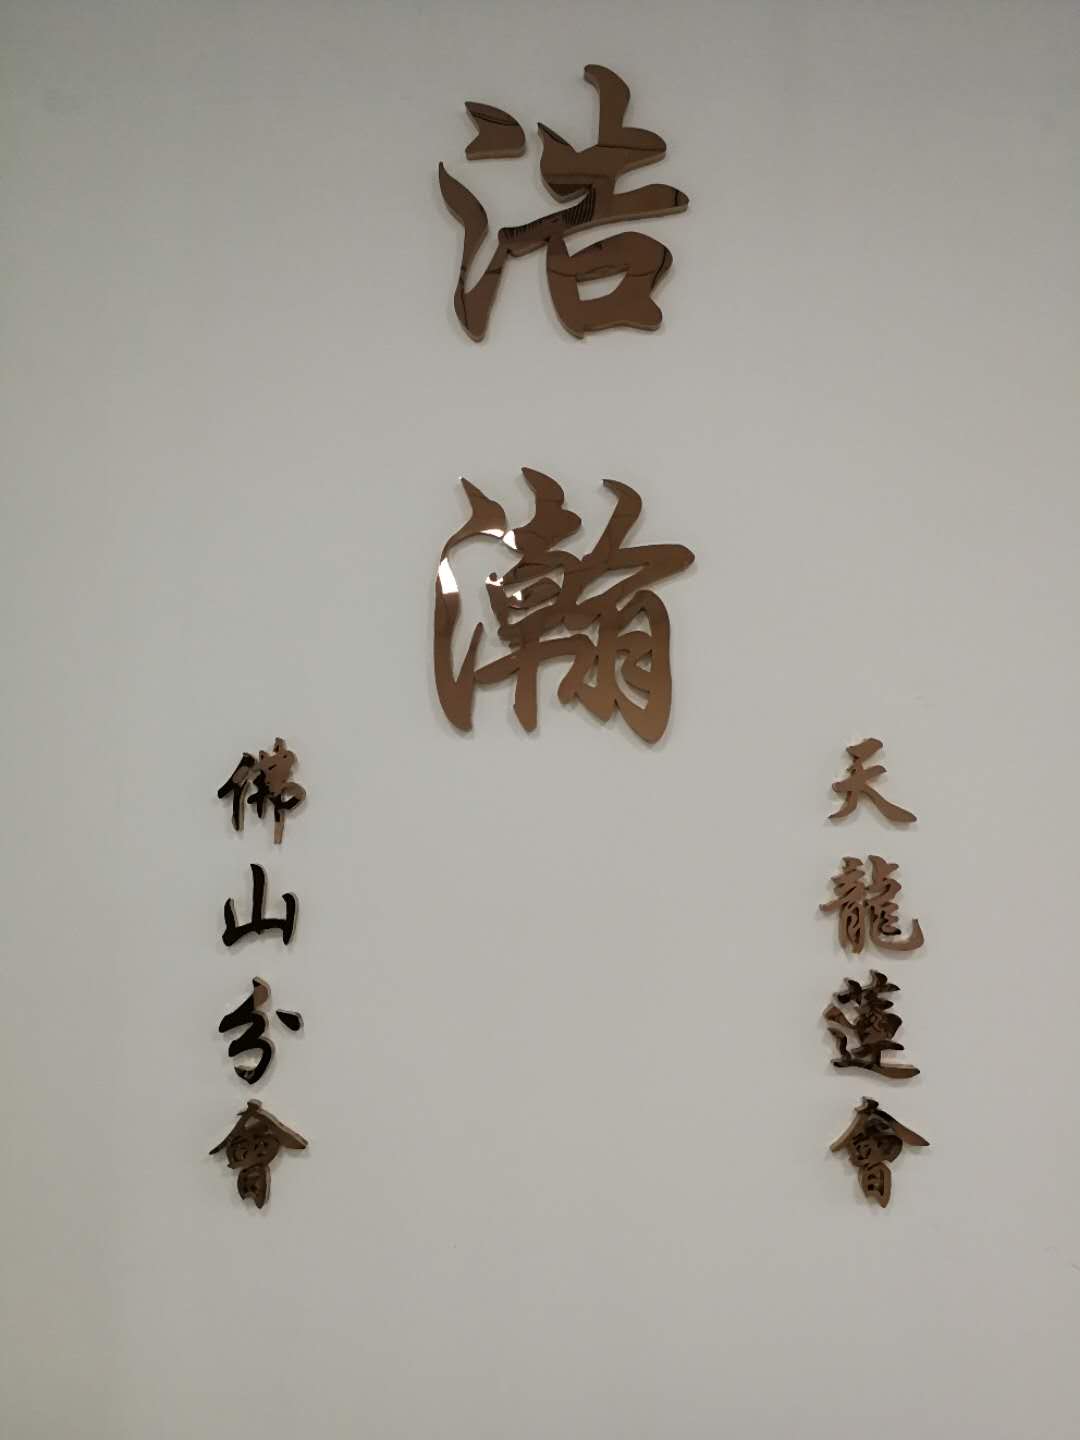 浩瀚
天龍蓮會
佛山分會